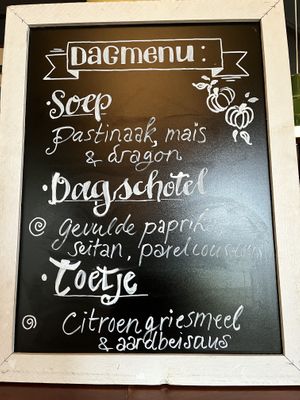 Dagmenu:
• Soep
Pastinaak, mais
& dragon
• Dagschotel
gevulde paprik
seitan, parelcouscous
• Toetje
Citroengriesmeel
& aardbeisaus